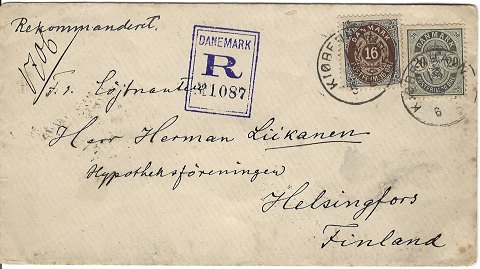 Rekommanderet.
1706
DANEMARK
R
№ 1087
KJØBE
DANMARK
16
DANMARK
20 20
F. d. Löjtnanten
Herr Herman Liikanen
Hypotheksföreningen
Helsingfors
Finland